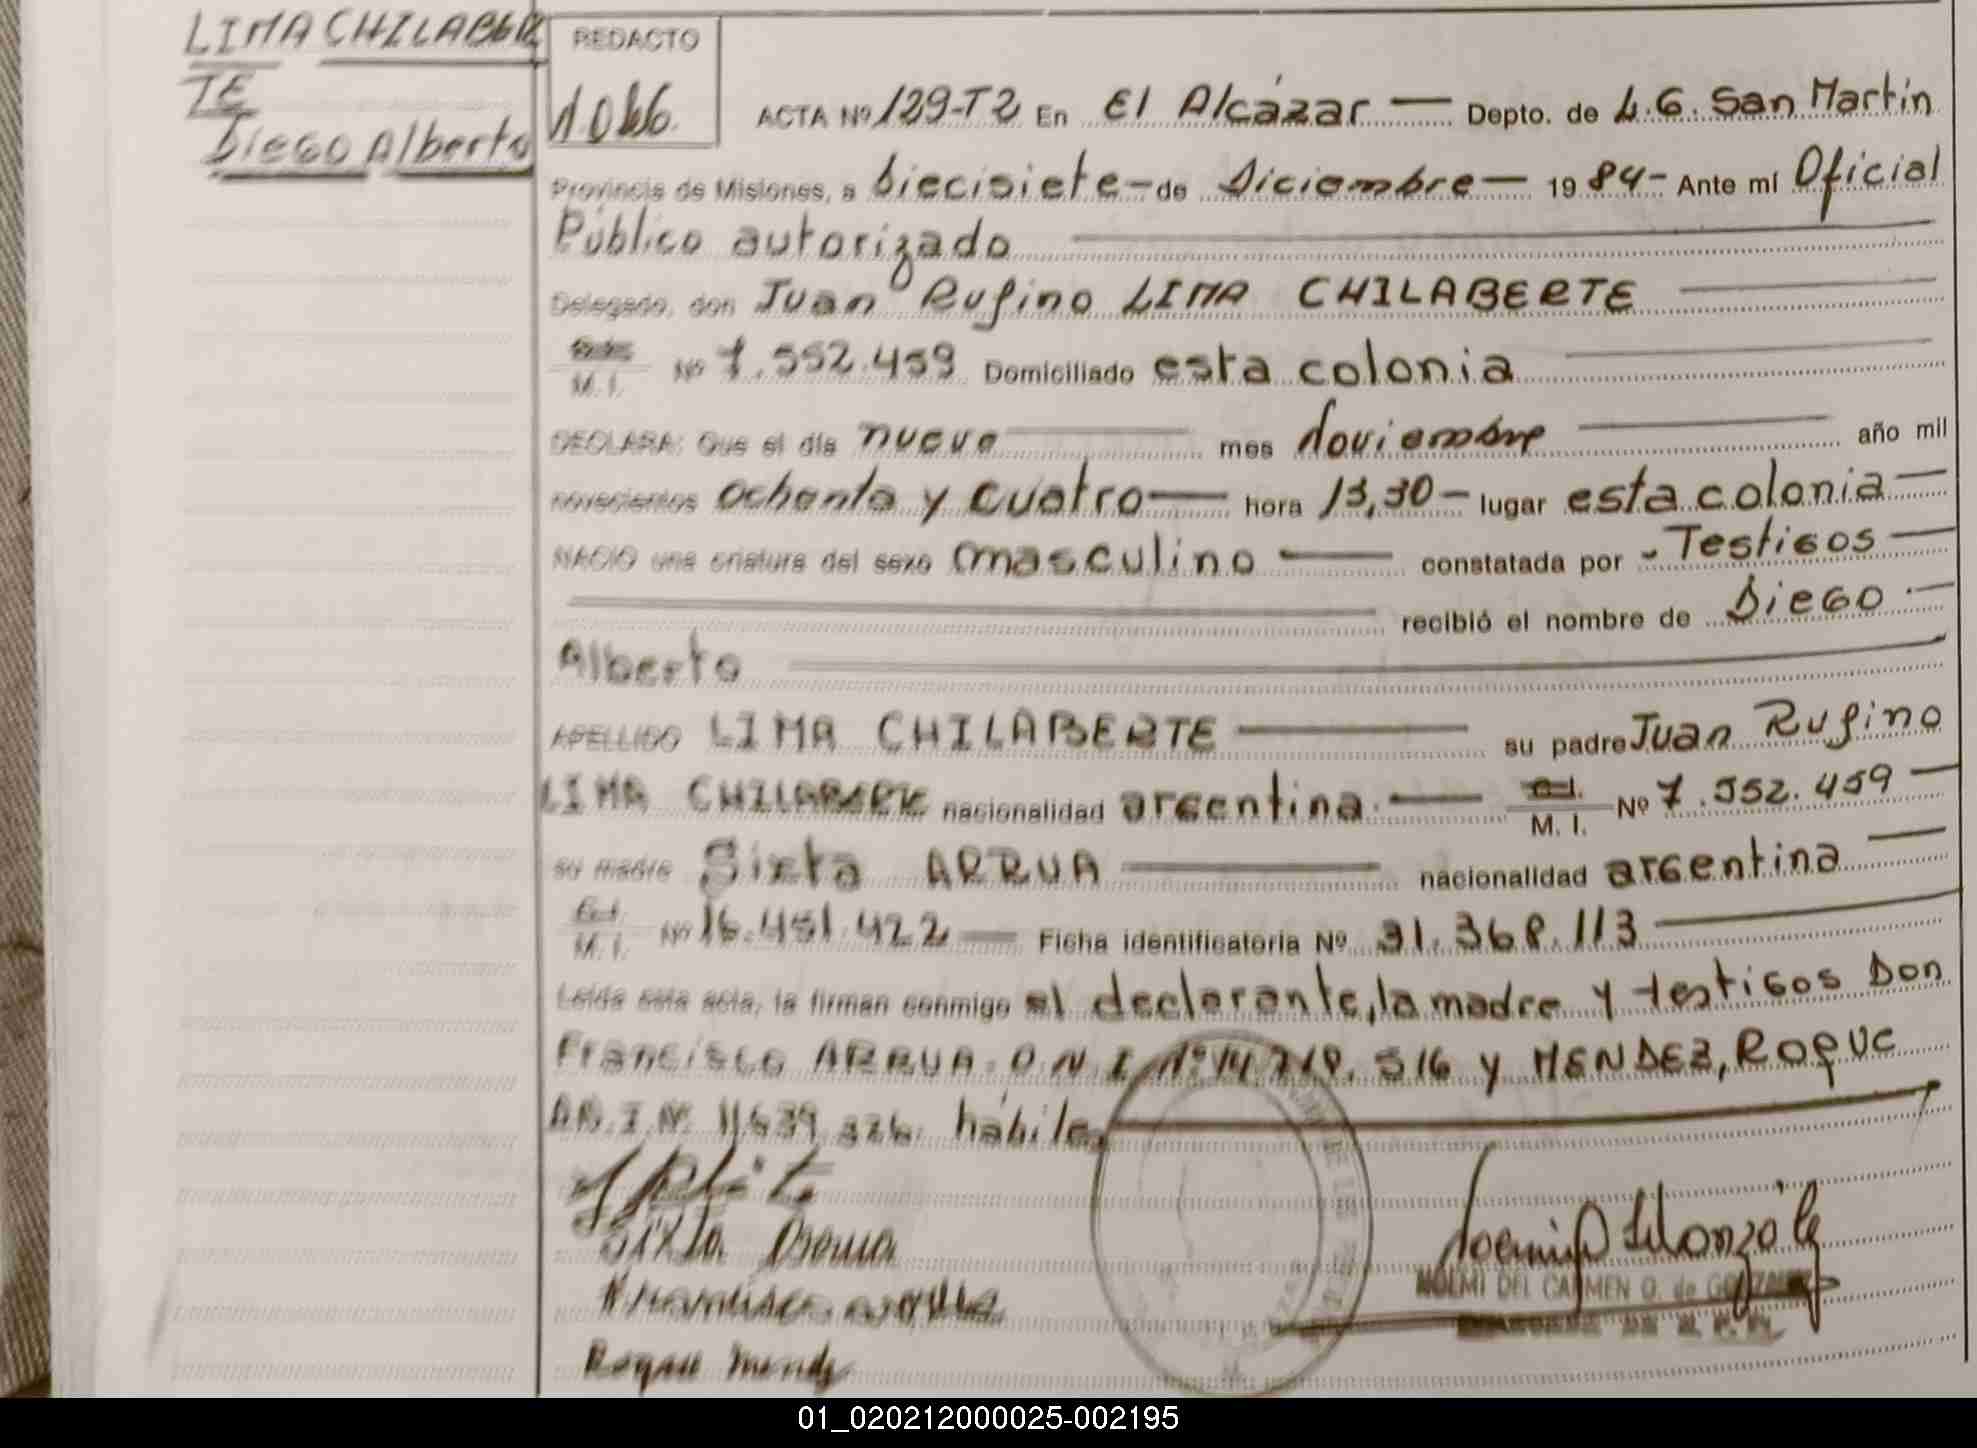 LIMA CHILABER
TE
Diego Alberto
REDACTO
1066
ACTA Nº 129-T2 En El Alcázar — Depto. de L.G. San Martín
Provincia de Misiones, a diecisiete — de Diciembre — 19 84- Ante mí Oficial
Público autorizado
Delegado, don Juan Rufino LIMA CHILABERTE
M. I. Nº 7.552.459 Domiciliado esta colonia
DECLARA: Que el día nueve mes Noviembre año mil
novecientos ochenta y cuatro — hora 13,30 — lugar esta colonia —
NACIO una criatura del sexo masculino — constatada por - Testigos —
recibió el nombre de Diego —
Alberto
APELLIDO LIMA CHILABERTE — su padre Juan Rufino
LIMA CHILABERTE nacionalidad argentina. — C.I. M. I. Nº 7.552.459 —
su madre Sixta ARRUA — nacionalidad argentina —
C.I. M. I. Nº 16.451.422 — Ficha identificatoria Nº 31.368.113 —
Leída esta acta, la firman conmigo el declarante, la madre y testigos Don
Francisco ARRUA D.N.I. Nº 14.718.516 y MENDEZ, ROQUE
D.N.I.Nº 11.639.326 hábiles
Sixta Arrua
Roque Mendez
NOEMI DEL CARMEN O. de GONZALEZ
01_020212000025-002195